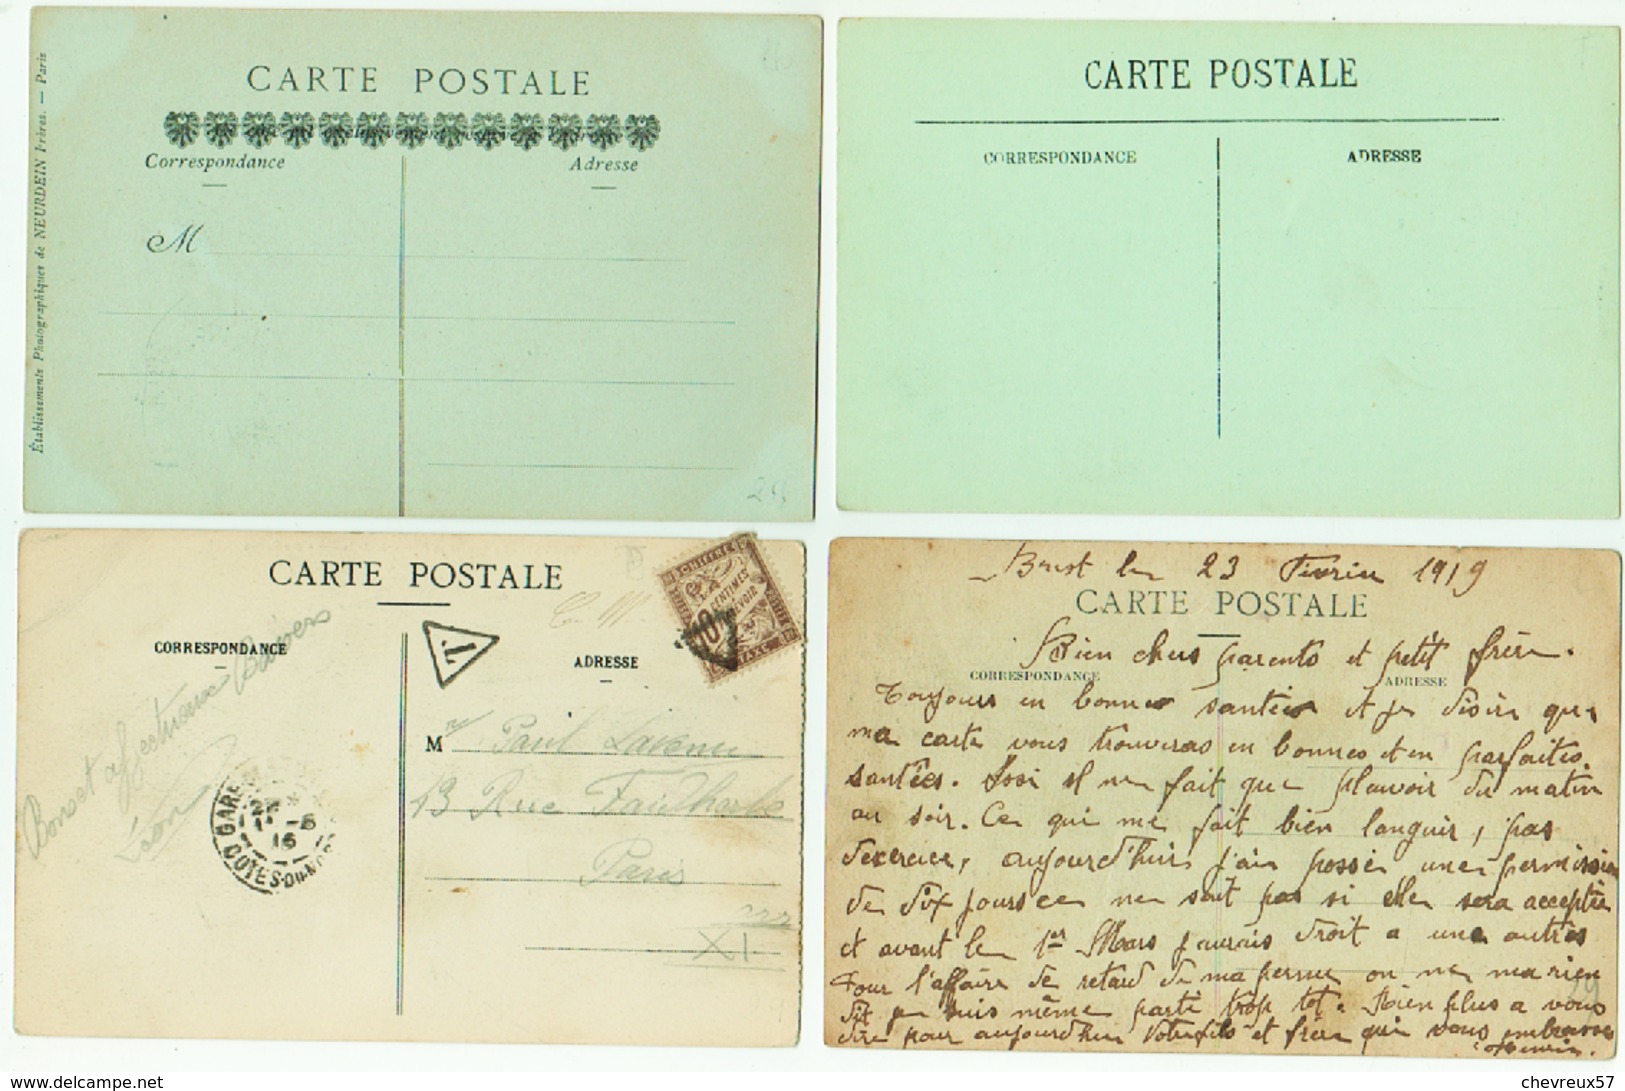 CARTE POSTALE
Correspondance
Adresse
M
Établissements Photographiques de NEURDEIN Frères. — Paris
CARTE POSTALE
CORRESPONDANCE
ADRESSE
CARTE POSTALE
CORRESPONDANCE
ADRESSE
T
CHIFFRE
10 CENTIMES
TAXE
Mr Paul
13 Rue Faidherbe
Paris
XI
Bons et affectueux Baisers
Léon
GARE
1-5
16
COTES-DU-NORD
Brest le 23 Février 1919
CARTE POSTALE
Bien chers parents et petit frère.
CORRESPONDANCE
ADRESSE
Toujours en bonne santée et je désire que
ma carte vous trouveras en bonnes et en parfaites
santées. Issi il ne fait que plauvoir du matin
au soir. Ce qui me fait bien languir, pas
d'exercice, aujourd'hui j'ai possé une permission
de dix jours ce ne sait pas si elle sera acceptée
et avant le 1er Mars j'aurais droit a une autres
Pour l'affaire de retard de ma perme on ne ma rien
dit je suis même parti trop tot. Bien plus a vous
dire pour aujourd'hui Votre fils et frère qui vous embrasse
Henri.
chevreux57